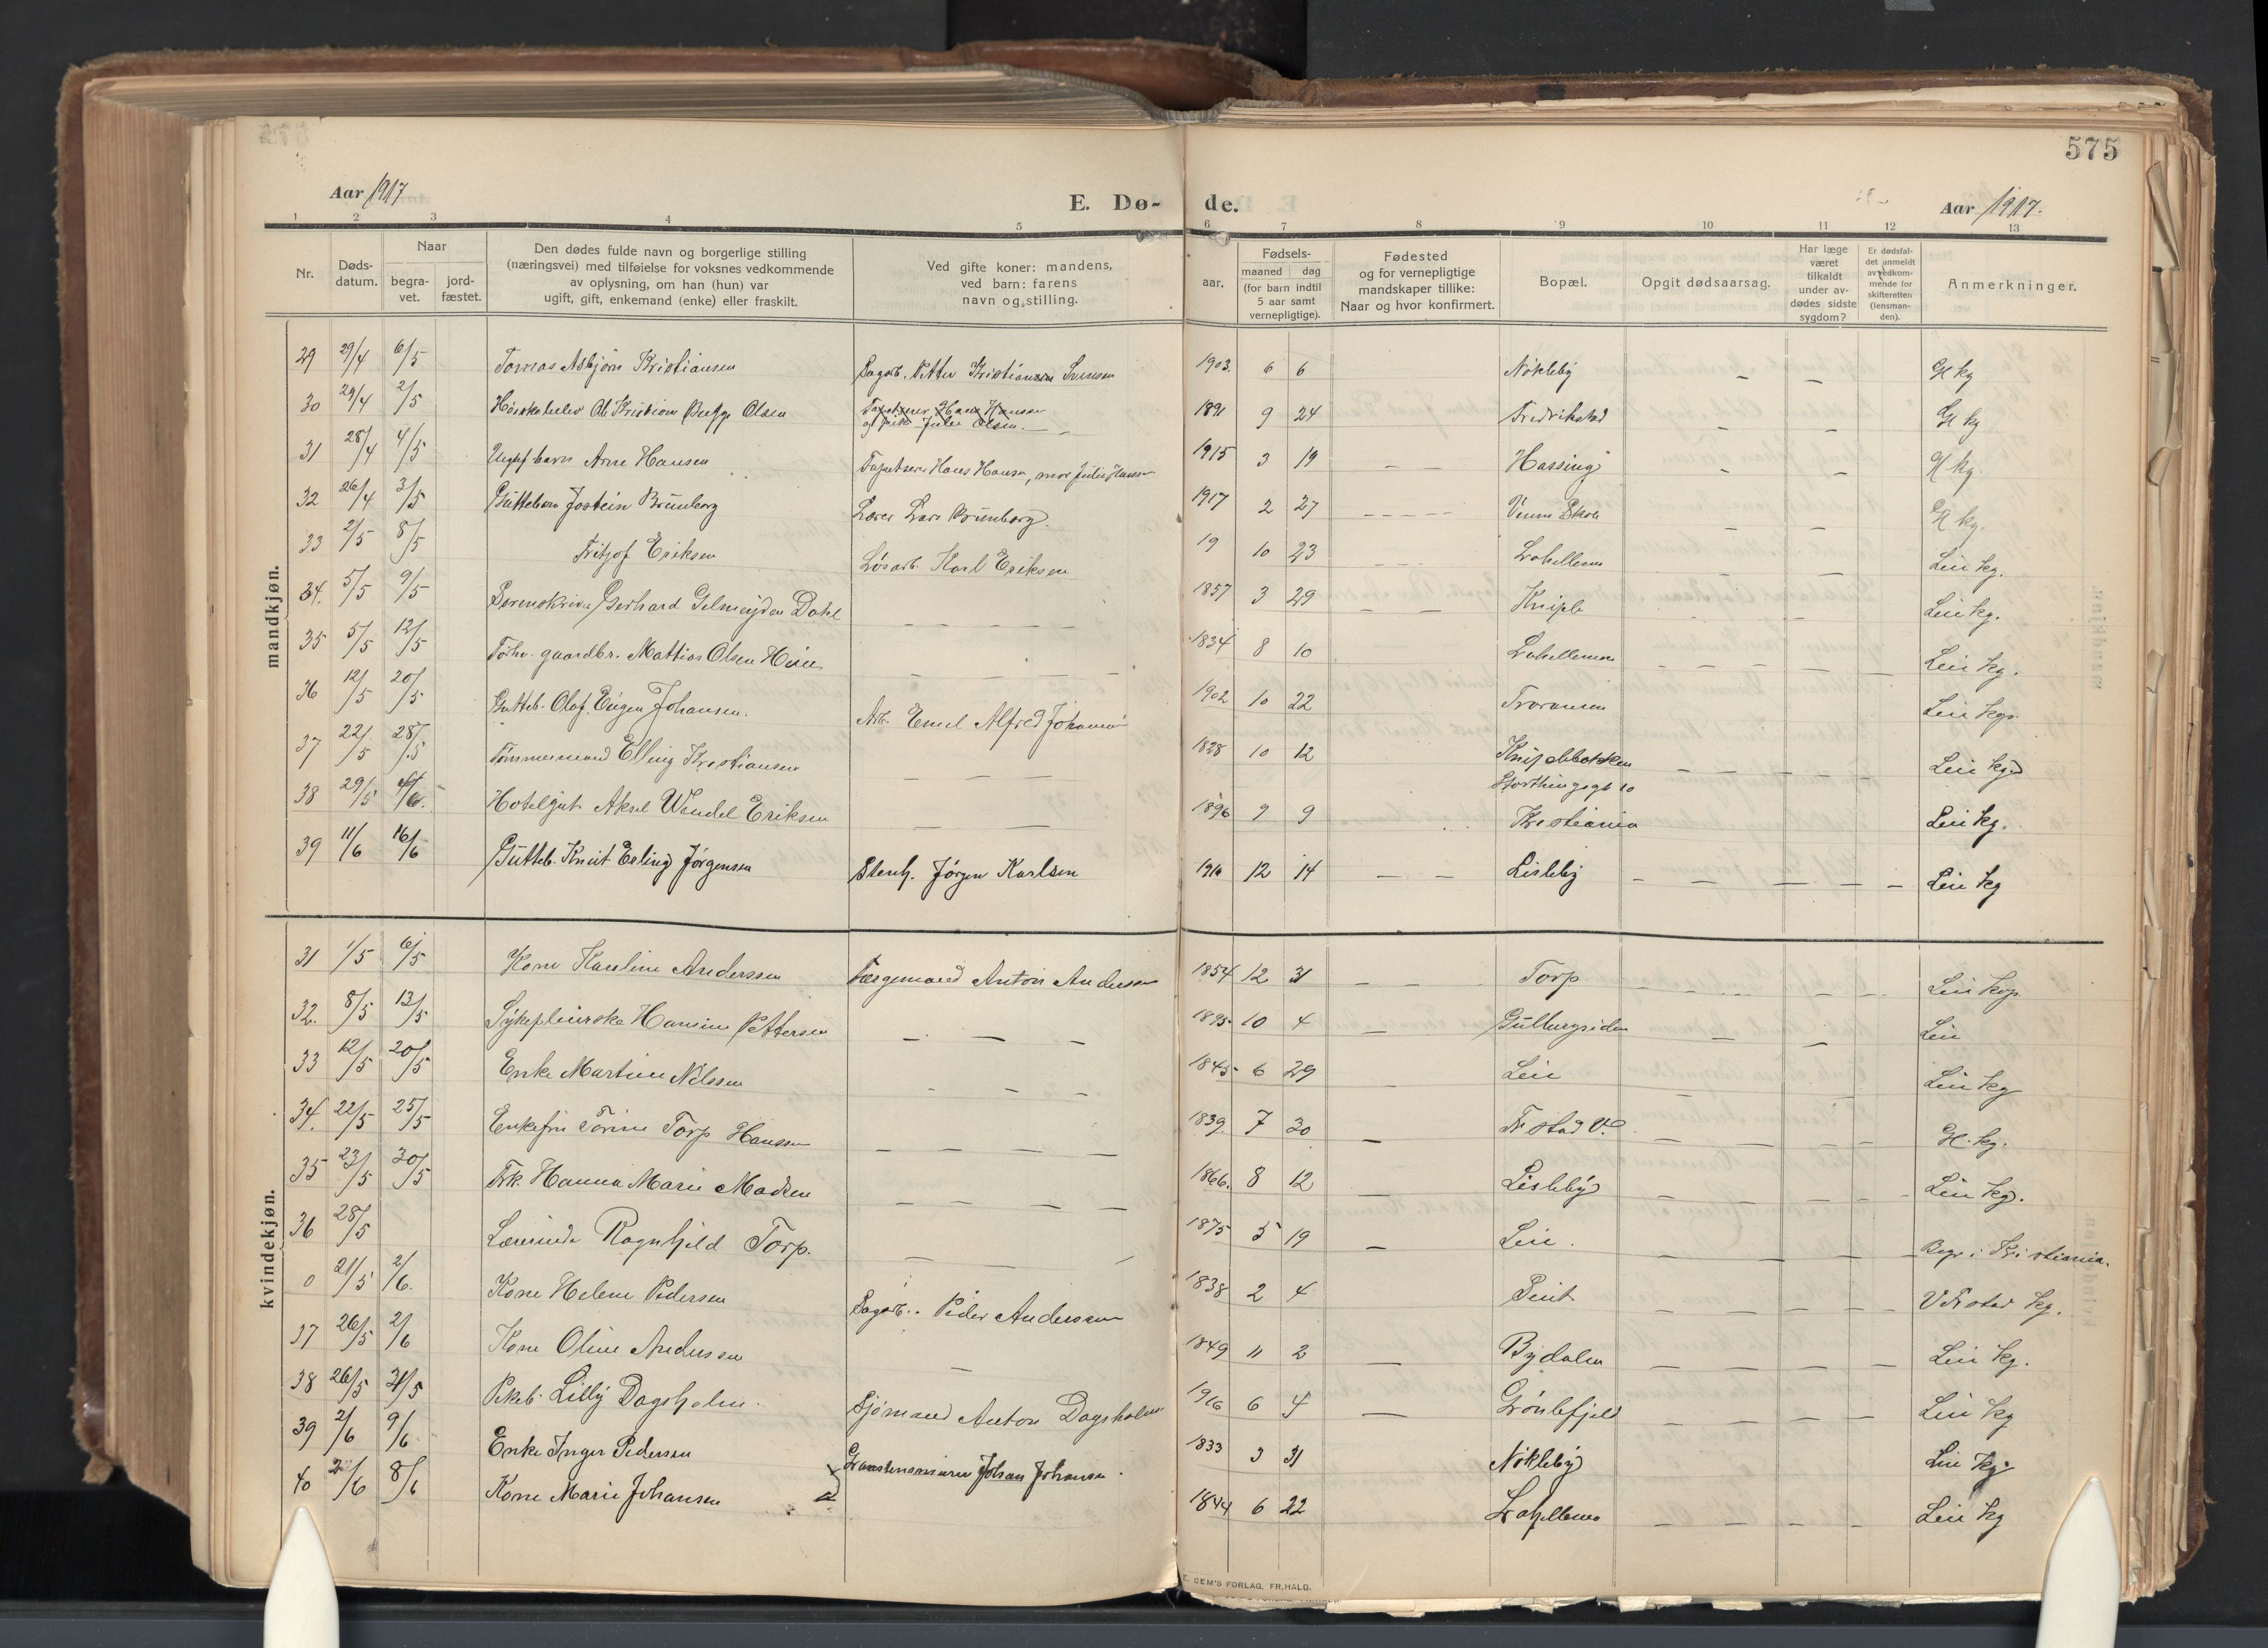 575
Aar 1917
E. Dø-
de.
Aar 1917.
1 2 3 4 5 6 7 8 9 10 11 12 13
Nr.
Døds-
datum.
Naar
begra-
vet.
jord-
fæstet.
Den dødes fulde navn og borgerlige stilling
(næringsvei) med tilføielse for voksnes vedkommende
av oplysning, om han (hun) var
ugift, gift, enkemand (enke) eller fraskilt.
Ved gifte koner: mandens,
ved barn: farens
navn og stilling.
aar.
Fødsels-
maaned dag
(for barn indtil
5 aar samt
vernepligtige).
Fødested
og for vernepligtige
mandskaper tillike:
Naar og hvor konfirmert.
Bopæl.
Opgit dødsaarsag.
Har læge
været
tilkaldt
under av-
dødes sidste
sygdom?
Er dødsfal-
det anmeldt
av vedkom-
mende for
skifteretten
(lensman-
den).
Anmerkninger.
mandkjøn.
29 29/4 6/5 Tomas Asbjørn Kristiansen Sagarb. Petter Kristiansen Svensen 1903. 6 6 Nøkleby — — Gl kg
30 29/4 2/5 Høiskoleelev Ol. Kristian Olsen Tapetserer Hans Hansen
Julie Olsen. 1891 9 24 Fredrikstad — — Gl kg
31 28/4 4/5 Arne Hansen Tapetserer Hans Hansen, mor Julie Hansen 1915 3 19 — — Hassing — — Gl kg.
32 26/4 3/5 Guttebarn Jostein Brunborg Lærer Lars Brunborg. 1917 2 27 — — — — Skole — — Gl kg.
33 2/5 8/5 Fritjof Eriksen Løsarb. Karl Eriksen 19 10 23 — — — Lahellemo — — Leie kg.
34. 5/5 9/5 Sorenskriver Gerhard Gelmeyden Dahl — — — — 1857 3 29 — — Kniple — — Leie kg.
35 5/5 12/5 gaardbr. Mattias Olsen Heie — — — — 1834 8 10 Lahellemo — — — — — Leie kg.
36 12/5 20/5 Gutteb. Olaf Eugen Johansen. Arb. Emil Alfred Johansen 1902 10 22 Traraasen Leie kg.
37 22/5 28/5 Tømmermand Elling Kristiansen — — — 1828 10 12 Kniplebakken — — — — — Leie kg.
38 29/5 4/6. Hotelgut Aksel Wendel Eriksen — — 1896 9 9 Storthingsgt 10
Kristiania Leie kg.
39 11/6 16/6 Gutteb. Knut Erling Jørgensen Stenh. Jørgen Karlsen 1916 12 14 — — Lisleby — — — — — Leie kg
kvindekjøn.
31 1/5 6/5 Kone Karoline Anderssen Færgemand Anton Andersen 1854 12 31 — — Torp — — — — — Leie kg.
32. 8/5 13/5 Sykepleierske Hansine Pettersen — — — 1895 10 4 — — — Leie
33 12/5 20/5 Enke Martine Nilssen — — — 1845 6 29 Leie — — Leie kg
34. 22/5 25/5 Enkefru Torine Torp Hanssen — — — — 1839. 7 30 — Fr stad V. — — — — — Gl. kg.
35 23/5 30/5 Frk. Hanna Marie Madsen — — — 1866. 8 12 — Lisleby — — — — — Leie kg.
36 28/5 Lærerinde Ragnhild Torp. — — 1875 5 19 — Leie. — — — — Begr i Kristiania.
0 21/5 2/6. Kone Helene Pedersen Sagarb. Peder Anderssen 1838 2 4 V Fr stad kg.
37 26/5 2/6 Kone Oline Anderssen — 1849 11 2 — Bydalen — — — — — Leie kg.
38 26/5 31/5 Pikeb. Lilly Dagsholm. Sjømand Anton Dagsholm 1916 6 4 — Grønlifjeld — — — — — Leie kg
39 2/6 9/6 Enke Inger Pedersen 1833 3 31 Nøkleby Leie kg.
40 2/6 8/6 Kone Marie Johansen Johan Johansen. 1844 6 22 Lahellemo — — — — Leie kg
E. SEM'S FORLAG, FR.HALD.